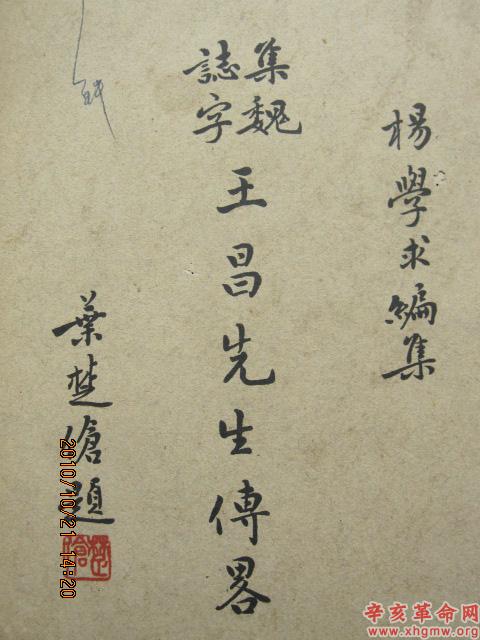 楊學求編集
集魏
誌字
王昌先生傳畧
葉楚傖題
2010/10/21 14:20
辛亥革命网
www.xhgmw.org